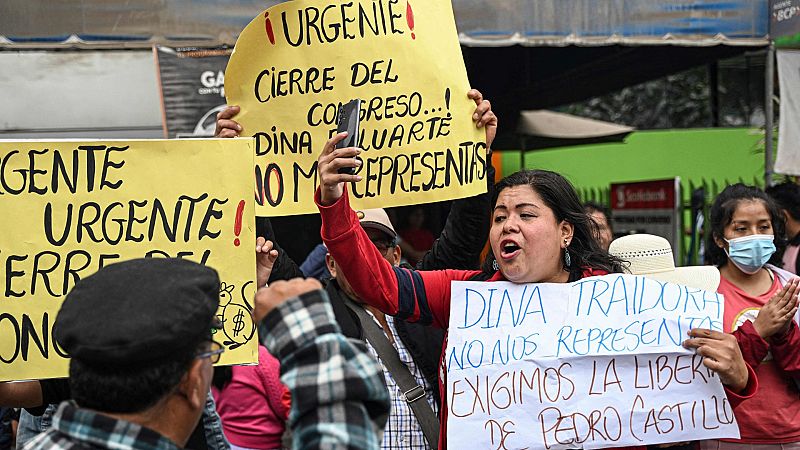 ¡URGENTE!
CIERRE DEL
CONGRESO...!
DINA BOLUARTE
NO ME REPRESENTAS
URGENTE
URGENTE!
DEL
$
DINA TRAIDORA
NO NOS REPRESENTAS
EXIGIMOS LA LIBERTAD
DE PEDRO CASTILLO
Scotiabank
BCP